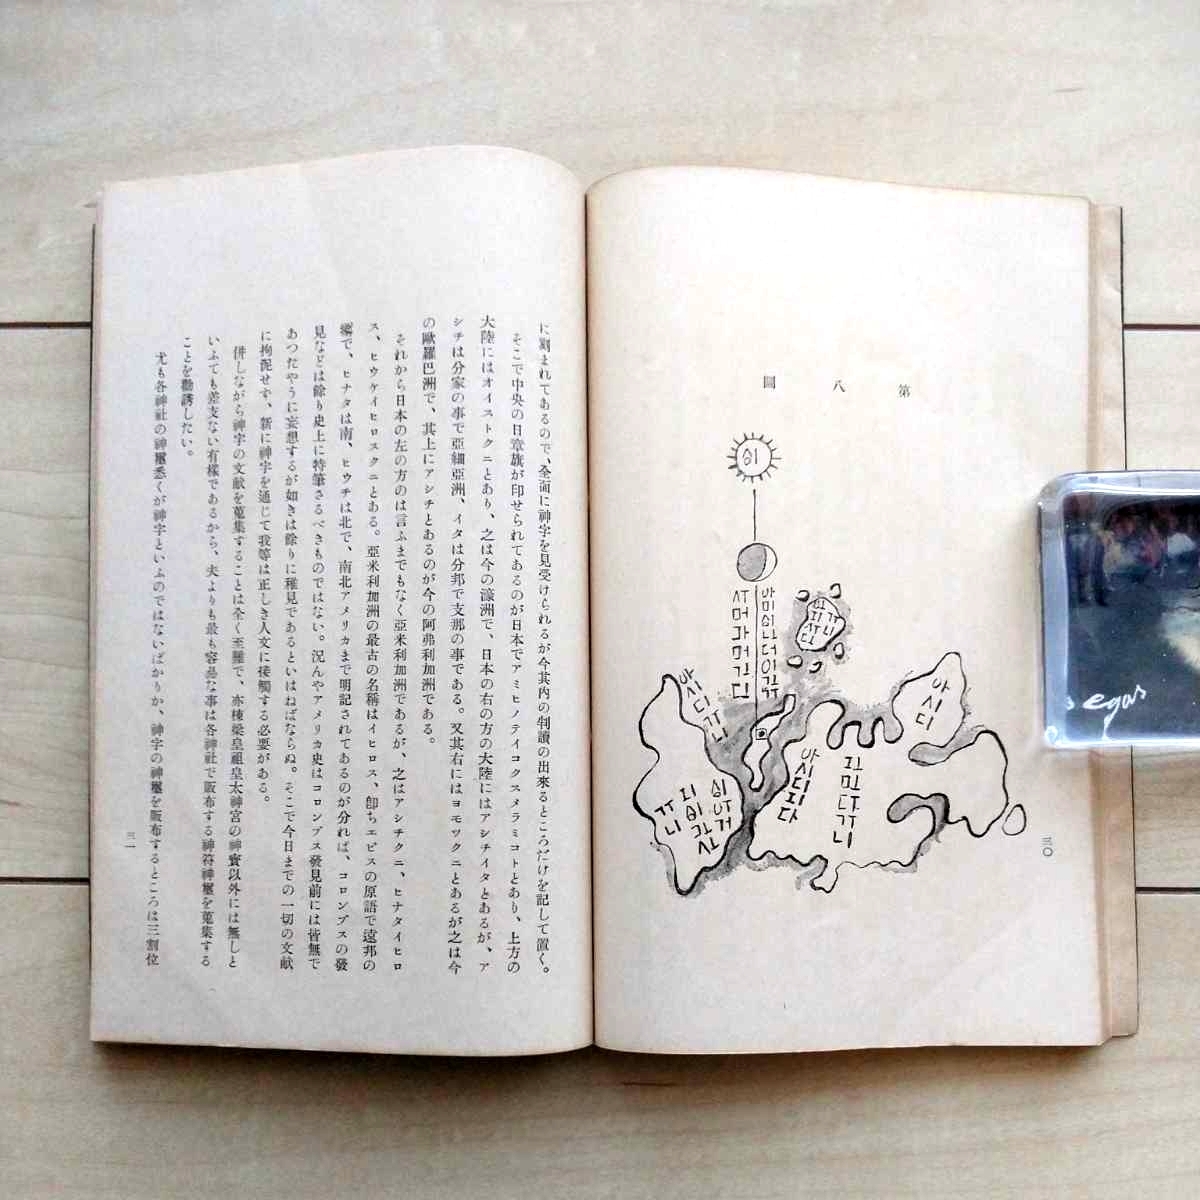 第八圖
아시디
三〇
に刻まれてあるので、全面に神字を見受けられるが今其内の判讀の出來るところだけを記して置く。
そこで中央の日章旗が印せられてあるのが日本でアミヒノテイコクスメラミコトとあり、上方の
大陸にはオイストクニとあり、之は今の濠洲で、日本の右の方の大陸にはアシチイタとあるが、ア
シチは分家の事で亞細亞洲、イタは分邦で支那の事である。又其右にはヨモツクニとあるが之は今
の歐羅巴洲で、其上にアシチとあるのが今の阿弗利加洲である。
それから日本の左の方のは言ふまでもなく亞米利加洲であるが、之はアシチクニ、ヒナタイヒロ
ス、ヒウケイヒロスクニとある。亞米利加洲の最古の名稱はイヒロス、卽ちエビスの原語で遠邦の
鄕で、ヒナタは南、ヒウチは北で、南北アメリカまで明記されてあるのが分れば、コロンブスの發
見などは餘り史上に特筆さるべきものではない。況んやアメリカ史はコロンブス發見前には皆無で
あつたやうに妄想するが如きは餘りに稚見であるといはねばならぬ。そこで今日までの一切の文献
に拘泥せず、新に神字を通じて我等は正しき人文に接觸する必要がある。
併しながら神字の文献を蒐集することは全く至難で、亦棟梁皇祖皇太神宮の神寳以外には無しと
いふても差支ない有樣であるから、夫よりも最も容易な事は各神社で販布する神符神璽を蒐集する
ことを勸誘したい。
尤も各神社の神璽悉くが神字といふのではないばかりか、神字の神璽を販布するところは三割位
三一
egas